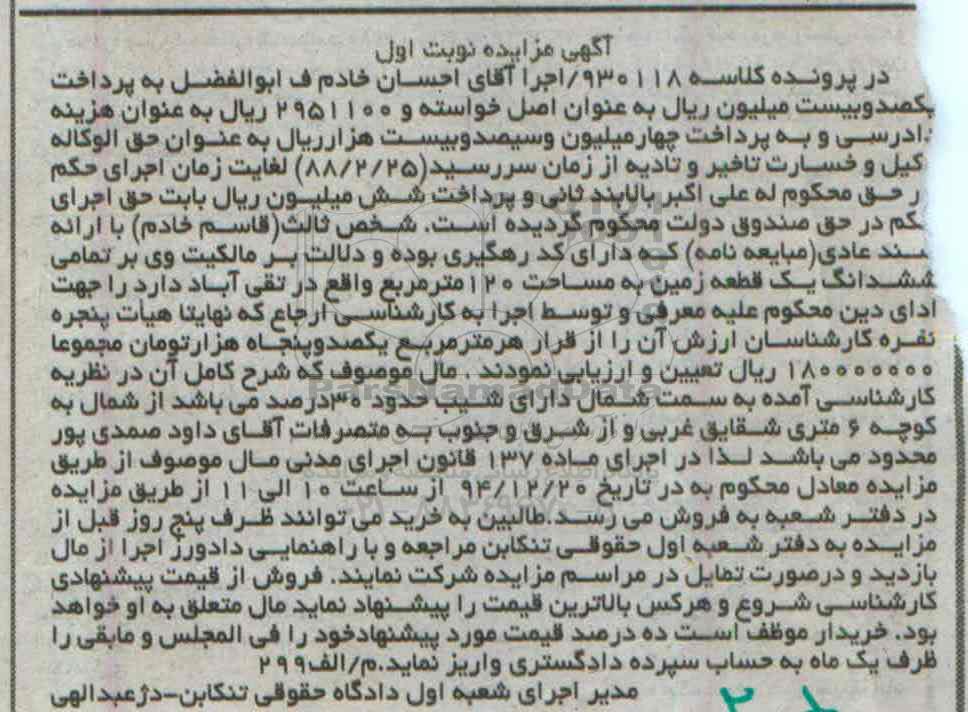 آگهی مزایده نوبت اول
در پرونده کلاسه ۹۳۰۱۱۸/اجرا آقای احسان خادم ف ابوالفضل به پرداخت
یکصدوبیست میلیون ریال به عنوان اصل خواسته و ۲۹۵۱۱۰۰ ریال به عنوان هزینه
دادرسی و به پرداخت چهارمیلیون وسیصدوبیست هزارریال به عنوان حق الوکاله
کیل و خسارت تاخیر و تادیه از زمان سررسید(۸۸/۲/۲۵) لغایت زمان اجرای حکم
ر حق محکوم له علی اکبر بالابند ثانی و پرداخت شش میلیون ریال بابت حق اجرای
کم در حق صندوق دولت محکوم گردیده است. شخص ثالث(قاسم خادم) با ارائه
سند عادی(مبایعه نامه) که دارای کد رهگیری بوده و دلالت بر مالکیت وی بر تمامی
ششدانگ یک قطعه زمین به مساحت ۱۲۰مترمربع واقع در تقی آباد دارد را جهت
ادای دین محکوم علیه معرفی و توسط اجرا به کارشناسی ارجاع که نهایتا هیات پنجره
نفره کارشناسان ارزش آن را از قرار هرمترمربع یکصدوپنجاه هزارتومان مجموعا
۱۸۰۰۰۰۰۰۰ ریال تعیین و ارزیابی نمودند . مال موصوف که شرح کامل آن در نظریه
کارشناسی آمده به سمت شمال دارای شیب حدود ۳۰درصد می باشد از شمال به
کوچه ۶ متری شقایق غربی و از شرق و جنوب به متصرفات آقای داود صمدی پور
محدود می باشد لذا در اجرای ماده ۱۳۷ قانون اجرای مدنی مال موصوف از طریق
مزایده معادل محکوم به در تاریخ ۹۴/۱۲/۲۰ از ساعت ۱۰ الی ۱۱ از طریق مزایده
در دفتر شعبه به فروش می رسد.طالبین به خرید می توانند ظرف پنج روز قبل از
مزایده به دفتر شعبه اول حقوقی تنکابن مراجعه و با راهنمایی دادورز اجرا از مال
بازدید و درصورت تمایل در مراسم مزایده شرکت نمایند. فروش از قیمت پیشنهادی
کارشناسی شروع و هرکس بالاترین قیمت را پیشنهاد نماید مال متعلق به او خواهد
بود. خریدار موظف است ده درصد قیمت مورد پیشنهادخود را فی المجلس و مابقی را
ظرف یک ماه به حساب سپرده دادگستری واریز نماید.م/الف۲۹۹
مدیر اجرای شعبه اول دادگاه حقوقی تنکابن-دژعبدالهی
ParsNamadData